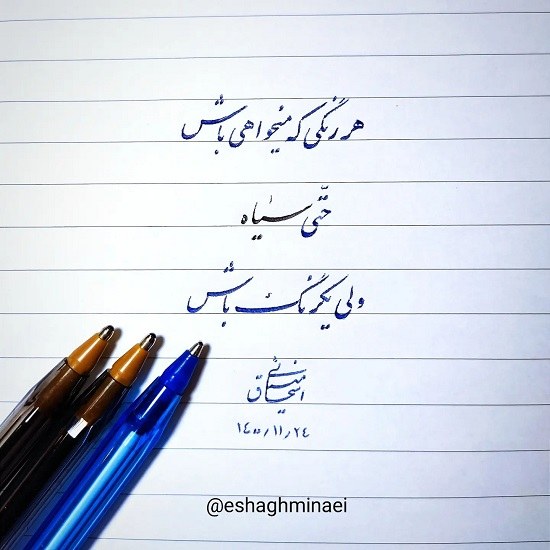 هر رنگی که میخواهی باش
حتّی سیاه
ولی یکرنگ باش
اسحاق مینائی
۱۴۰۰/۱۱/۲۴
@eshaghminaei